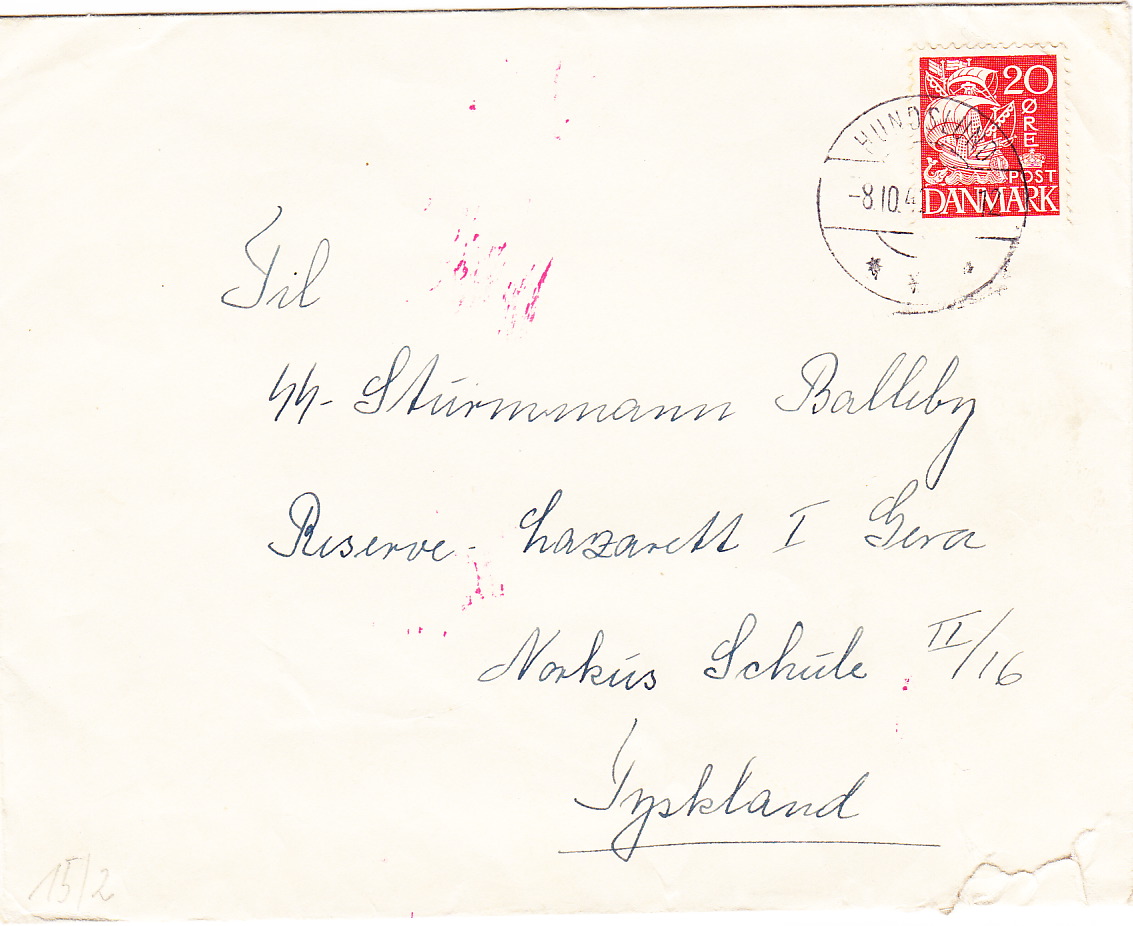 20
ØRE
POST
DANMARK
HUNDSLUND
-8.10.4 12
Til
SS- Sturmmann Balleby
Reserve- Lazarett I Gera
Norkus Schule II/16
Tyskland
15/2